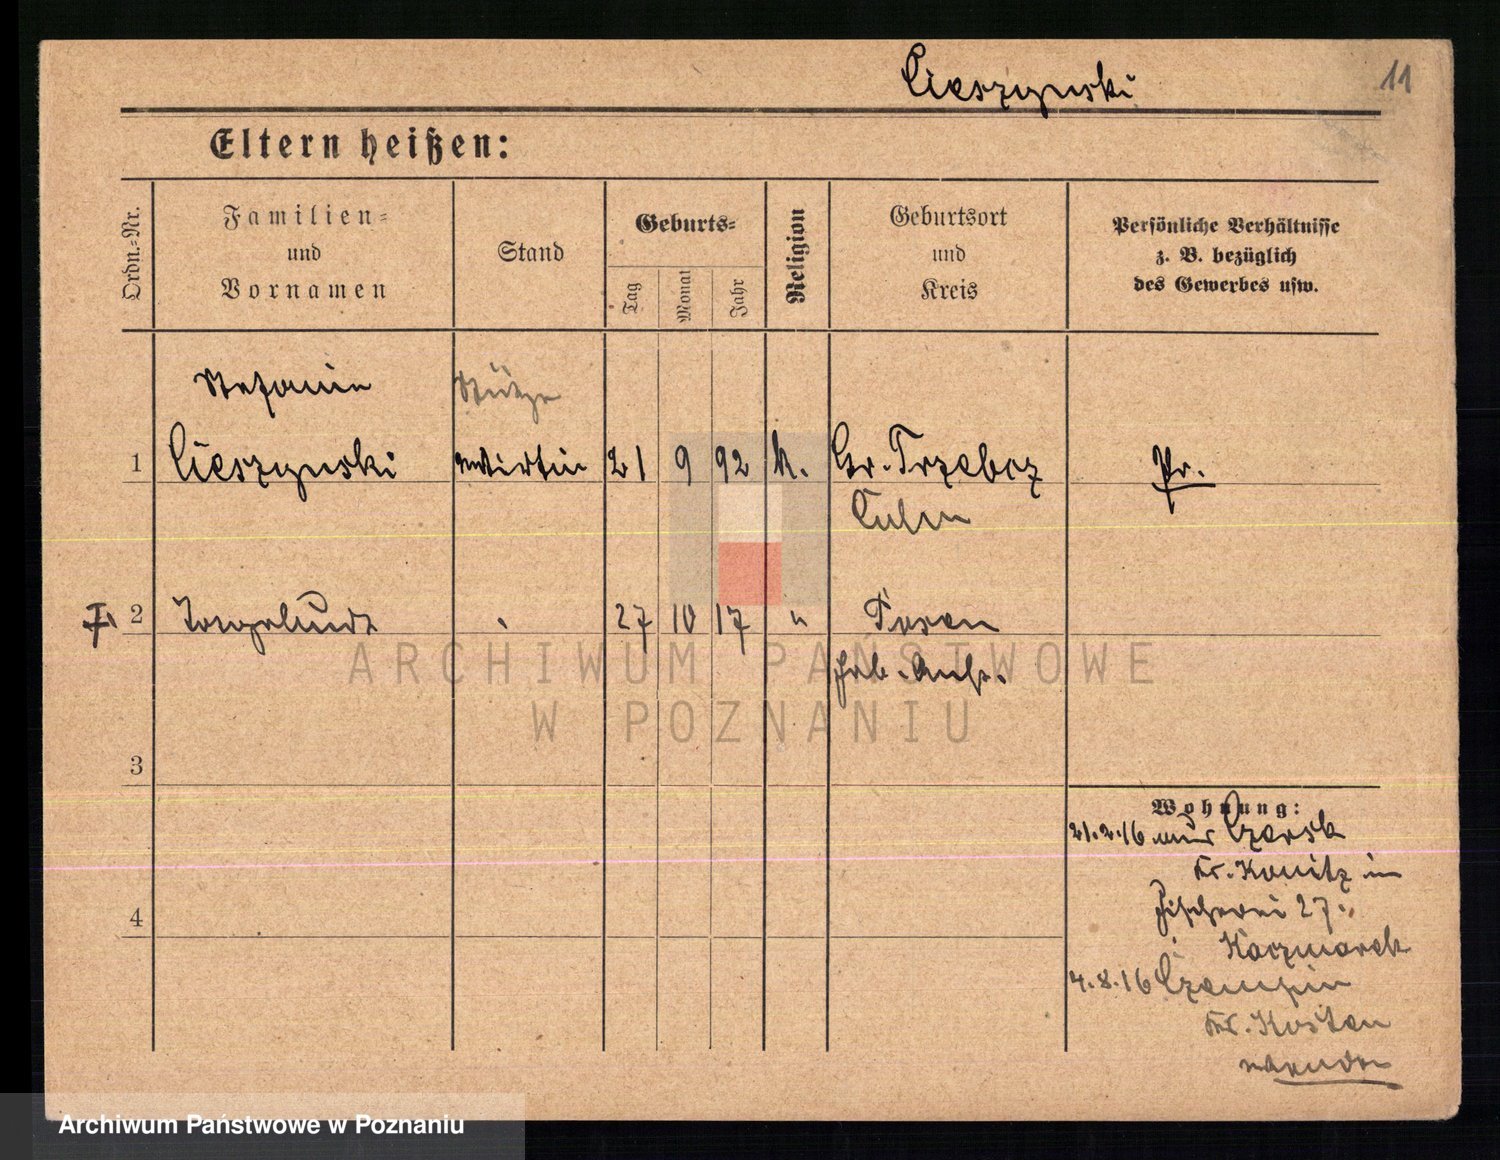 Cieszynski
11
Eltern heißen:
Ordn.-Nr.
Familien-
und
Vornamen
Stand
Geburts-
Tag
Monat
Jahr
Religion
Geburtsort
und
Kreis
Persönliche Verhältnisse
z. B. bezüglich
des Gewerbes usw.
Stefanie
Stütze
1 Cieszynski Wirtin 21 9 92 k. Gr. Trzebcz Pr.
Culm
2 27 10 17 " Posen
ARCHIWUM PAŃSTWOWE
W POZNANIU
3
Wohnung:
21.2.16 aus Czersk
Kr. Konitz in
Fischerei 27.
Kaczmarek
4
4.8.16 Czempin
Kr. Kosten
Archiwum Państwowe w Poznaniu